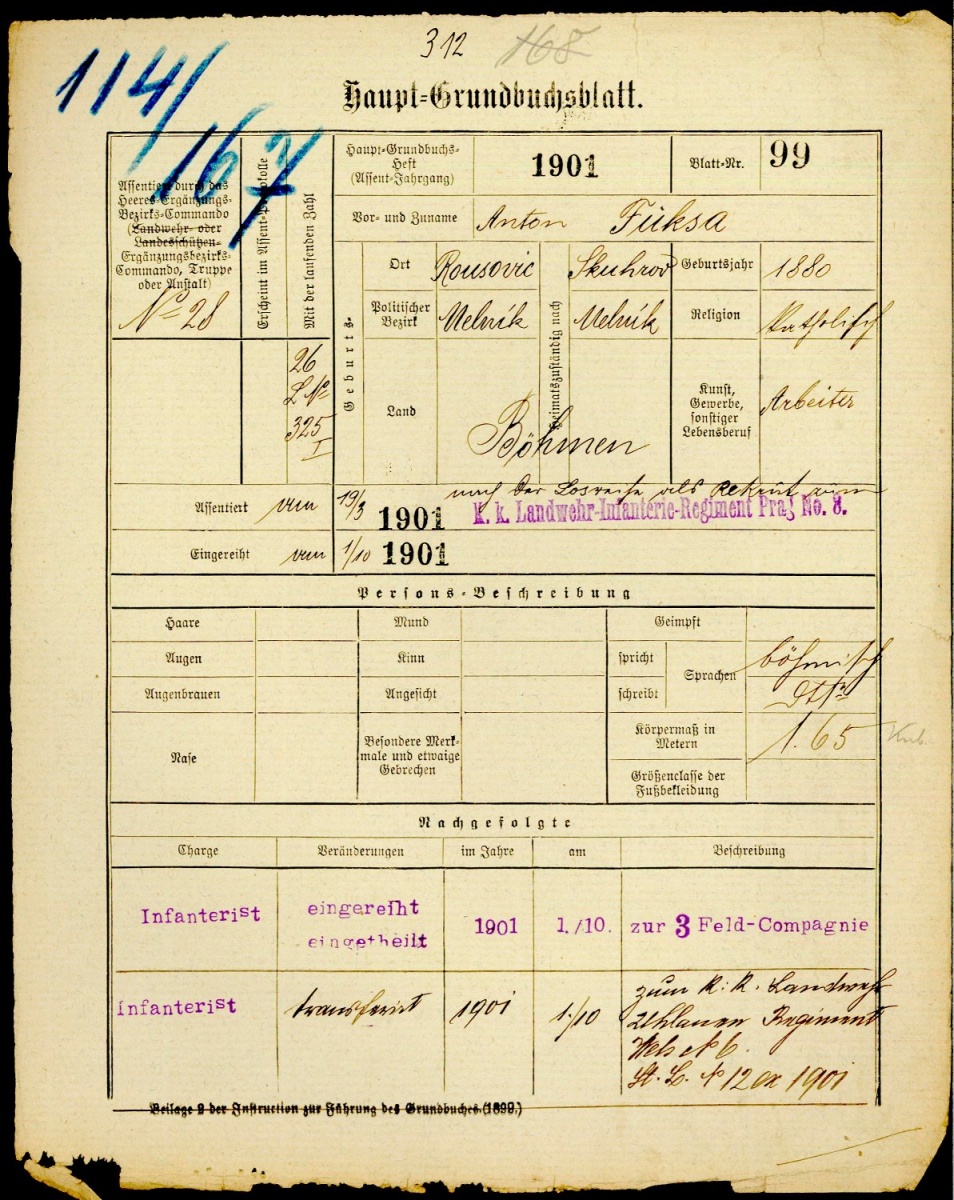 312 168
114/167
Haupt=Grundbuchsblatt.
Assentiert durch das
Heeres-Ergänzungs-
Bezirks-Commando
(Landwehr- oder
Landesschützen-
Ergänzungsbezirks-
Commando, Truppe
oder Anstalt)
No 28
Erscheint im Assent-Protokolle
Mit der laufenden Zahl
26
L No
325
I
Haupt=Grundbuchs-
Heft
(Assent=Jahrgang)
1901
Blatt=Nr. 99
Vor= und Zuname Anton Fuksa
Geburts-
Heimatszuständig nach
Ort Rousovic Skuhrov Geburtsjahr 1880
Politischer
Bezirk Melnik Melnik Religion Katholisch
Land Böhmen
Kunst,
Gewerbe,
sonstiger
Lebensberuf
Arbeiter
Assentiert am 19/3 1901 nach der Losreihe als Rekrut zum
k. k. Landwehr-Infanterie-Regiment Prag No. 8.
Eingereiht am 1/10 1901
Persons=Beschreibung
Haare Mund Geimpft
Augen Kinn spricht Sprachen böhmisch
Augenbrauen Angesicht schreibt
Nase
Besondere Merk-
male und etwaige
Gebrechen
Körpermaß in
Metern
1.65
Größenclasse der
Fußbekleidung
Nachgefolgte
Charge Veränderungen im Jahre am Beschreibung
Infanterist eingereiht
eingetheilt 1901 1./10. zur 3 Feld-Compagnie
Infanterist transferirt 1901 1./10 zum k: k. Landwehr
Uhlanen Regiment
Wels No 6.
St. L. No 12 ex 1901
Beilage 2 der Instruction zur Führung des Grundbuches. (1899.)